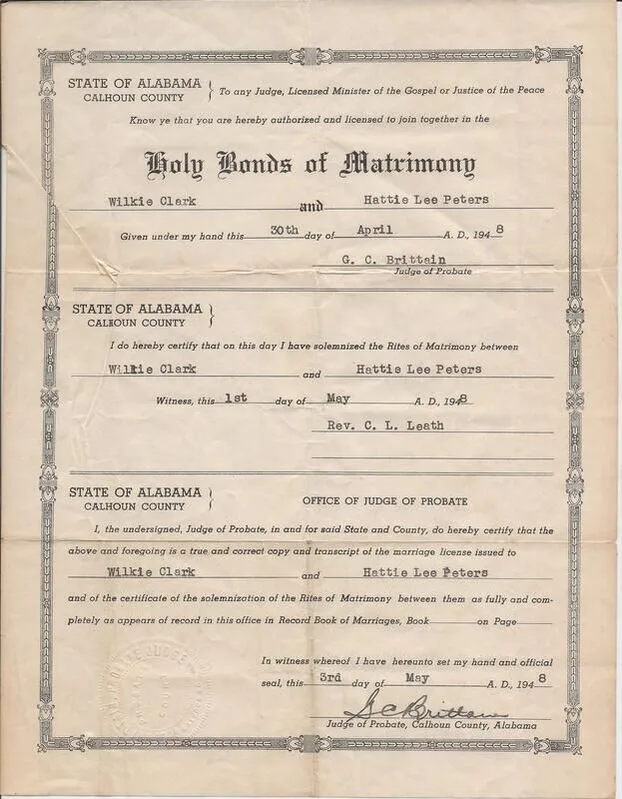 STATE OF ALABAMA
CALHOUN COUNTY
To any Judge, Licensed Minister of the Gospel or Justice of the Peace
Know ye that you are hereby authorized and licensed to join together in the
Holy Bonds of Matrimony
Wilkie Clark and Hattie Lee Peters
Given under my hand this 30th day of April A. D., 1948
G. C. Brittain
Judge of Probate
STATE OF ALABAMA
CALHOUN COUNTY
I do hereby certify that on this day I have solemnized the Rites of Matrimony between
Wilkie Clark and Hattie Lee Peters
Witness, this 1st day of May A. D., 1948
Rev. C. L. Leath
STATE OF ALABAMA
CALHOUN COUNTY
OFFICE OF JUDGE OF PROBATE
I, the undersigned, Judge of Probate, in and for said State and County, do hereby certify that the
above and foregoing is a true and correct copy and transcript of the marriage license issued to
Wilkie Clark and Hattie Lee Peters
and of the certificate of the solemnization of the Rites of Matrimony between them as fully and com-
pletely as appears of record in this office in Record Book of Marriages, Book on Page
In witness whereof I have hereunto set my hand and official
seal, this 3rd day of May A. D., 1948
G C Brittain
Judge of Probate, Calhoun County, Alabama